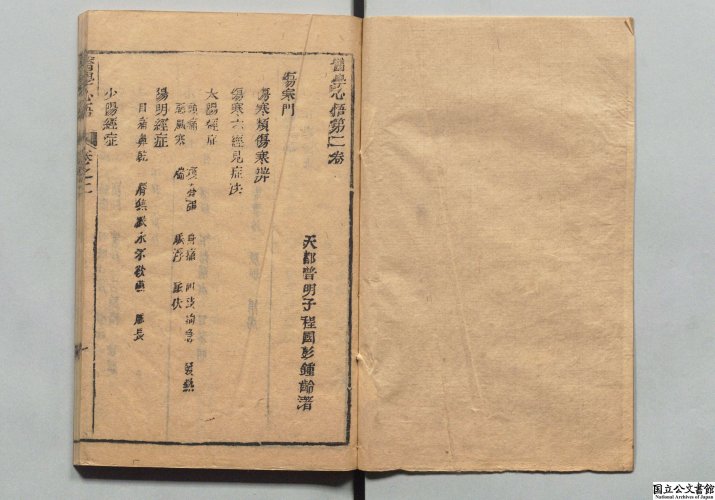 醫學心悟第二卷
天都普明子程國彭鍾齡著
傷寒門
傷寒類傷寒辨
傷寒六經見症法
太陽經症
頭痛 項脊強 身痛 四肢拘急 發熱
惡風寒 喘 脈浮 脈伏
陽明經症
目痛鼻乾 唇焦漱水不欲嚥 脈長
少陽經症
醫學心悟
卷之二
一
国立公文書館
National Archives of Japan